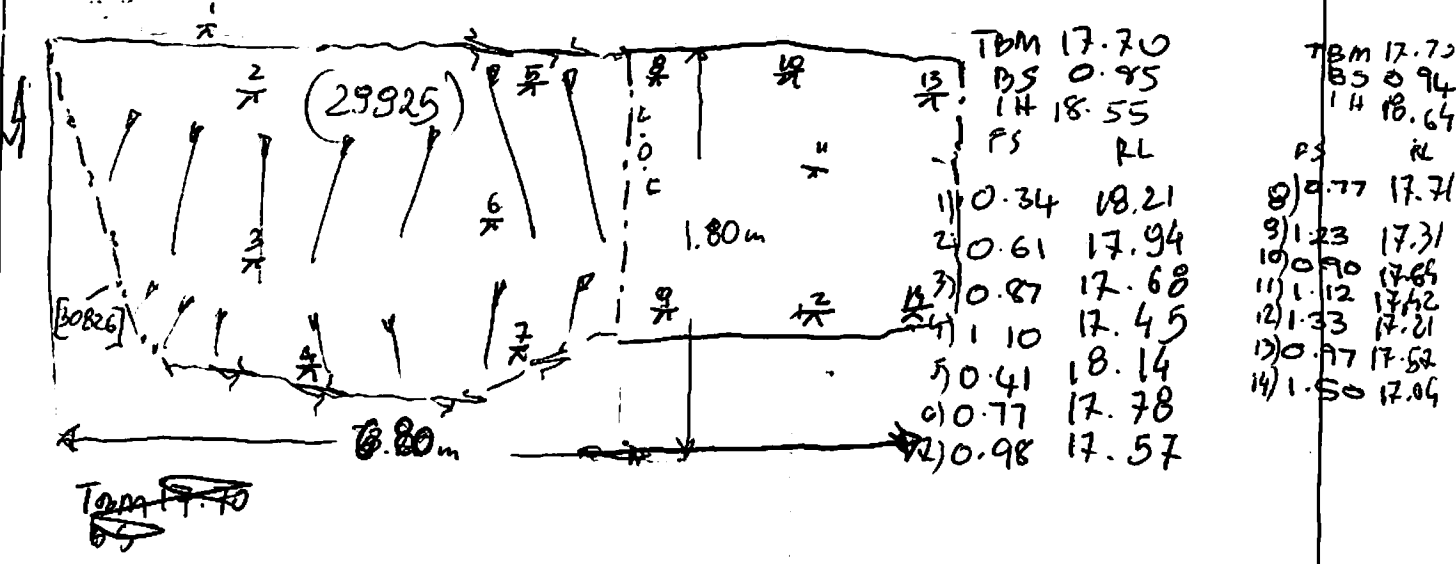 1
2
(29925)
5
8
10
13
L.O.E
11
6
3
1.80m
[30826]
9
12
14
4
7
6.80m
TBM 17.70
BS
TBM 17.70
BS 0.85
IH 18.55
FS RL
1) 0.34 18.21
2) 0.61 17.94
3) 0.87 17.68
4) 1.10 17.45
5) 0.41 18.14
6) 0.77 17.78
7) 0.98 17.57
TBM 17.70
BS 0.94
IH 18.64
FS RL
8) 0.77 17.71
9) 1.23 17.31
10) 0.90
11) 1.12 17.42
12) 1.33 17.21
13) 0.97 17.52
14) 1.50 17.04